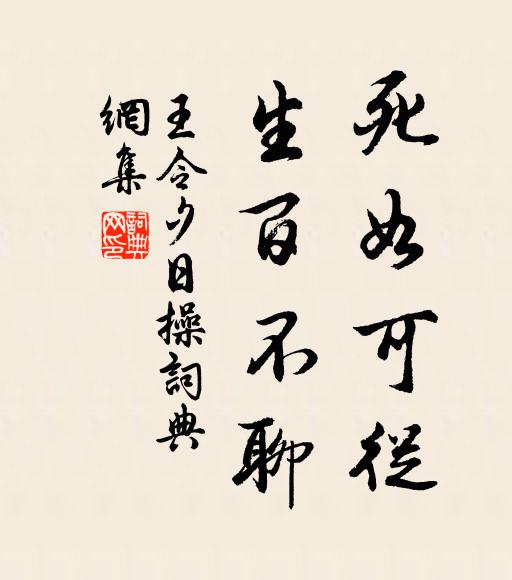 死如可從
生百不聊
王令夕日操詞典
網集
詞典
网印